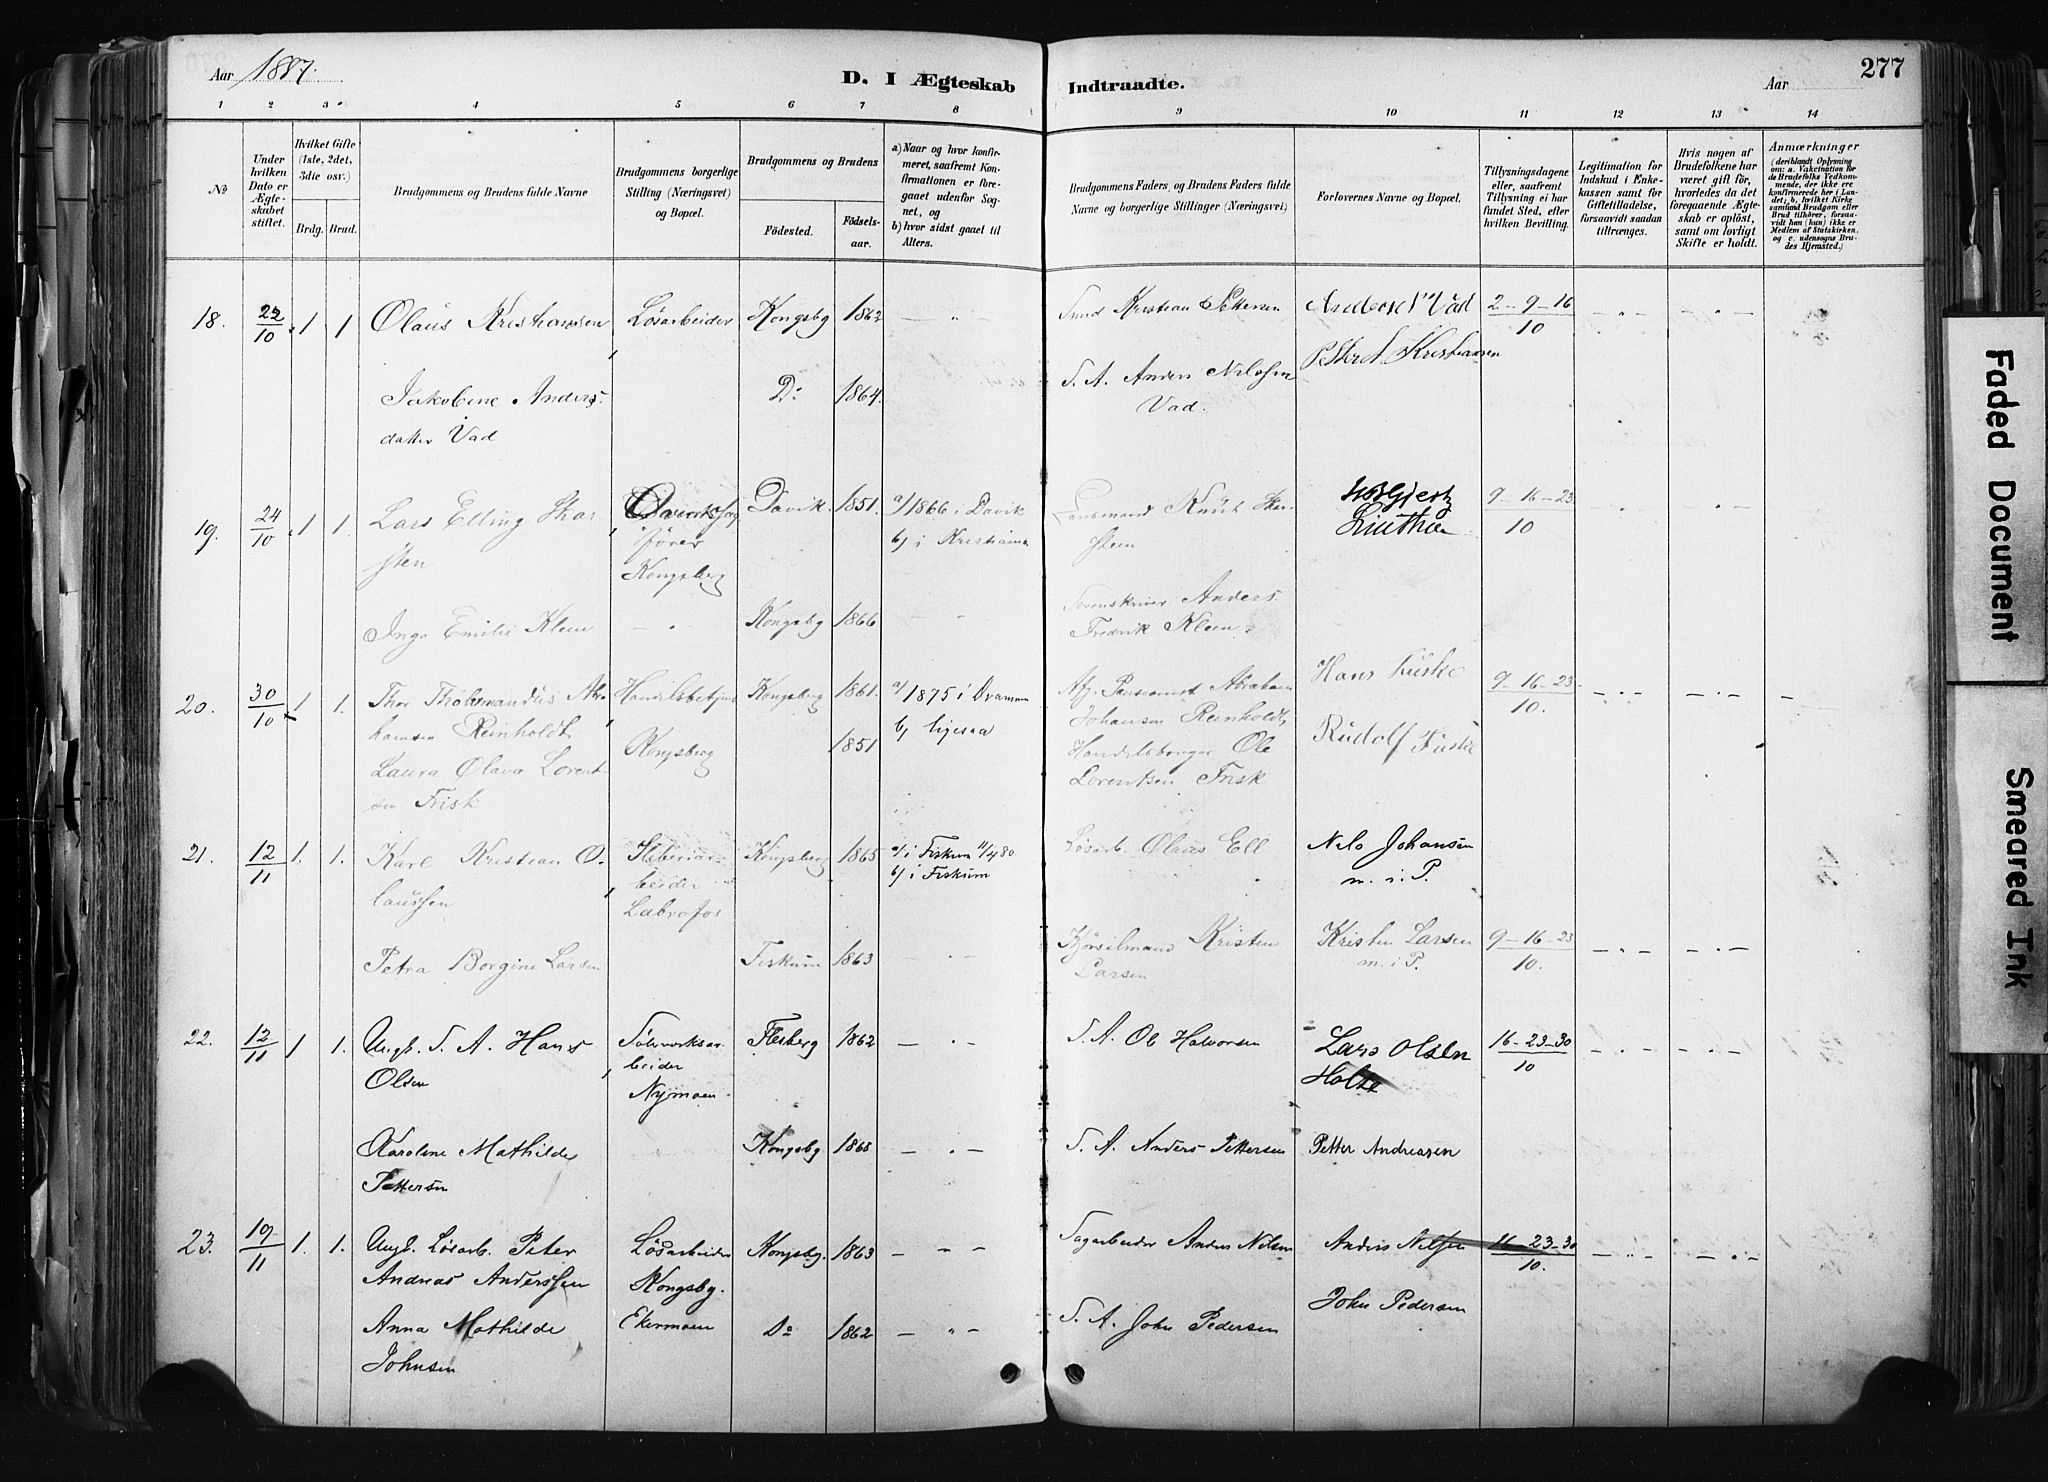 Aar 1887.
D. I Ægteskab Indtraadte.
Aar
277
1 2 3 4 5 6 7 8 9 10 11 12 13 14
No
Under hvilken Dato er Ægteskabet stiftet.
Hvilket Gifte (1ste, 2det, 3die osv.)
Brdg. Brud.
Brudgommens og Brudens fulde Navne
Brudgommens borgerlige Stilling (Næringsvei) og Bopæl.
Brudgommens og Brudens
Fødested. Fødselsaar.
a) Naar og hvor konfirmeret, saafremt Konfirmationen er foregaaet udenfor Sognet, og
b) hvor sidst gaaet til Alters.
Brudgommens Faders, og Brudens Faders fulde Navne og borgerlige Stillinger (Næringsvei)
Forlovernes Navne og Bopæl.
Tillysningsdagene eller, saafremt Tillysning ei har fundet Sted, efter hvilken Bevilling.
Legitimation for Indskud i Enkekassen samt for Giftetilladelse, forsaavidt saadan tiltrænges.
Hvis nogen af Brudefolkene har været gift før, hvorledes da det foregaaende Ægteskab er opløst, samt om lovligt Skifte er holdt.
Anmærkninger
(deriblandt Oplysning om: a. Vakcination for de Brudefolks Vedkommende, der ikke ere konfirmerede her i Landet; b, hvilket Kirkesamfund Brudgom eller Brud tilhører, forsaavidt han (hun) ikke er Medlem af Statskirken, og c. udensogns Brudes Hjemsted.)
18. 22/10 1 1 Olaus Kristiansen Løsarbeider Kongsbg 1862 — " — Kristian Pettersen 2-9-16/10 — " — — " —
Petter A. Kristiansen
Jakobine Anders- D: 1864. S. A. Anders Nilssen
datter Vad Vad.
19. 24/10 1 1. Lars Elling Skar- Davik 1851. a/1866 i Davik Lensmand Knut Skar- 9-16-23/10 — " — — " —
sten fører b/ i Kristiania steen
Kongsberg
Inga Emilie Kleen — " — Kongsbg 1866 — " — Sorenskriver Anders
Fredrik Kleen.
20. 30/10 1 1. Thor Tholemandus Abra- Handelsbetjent Kongsberg 1861. a/1875 i Drammen Abraham Hans 9-16-23/10. — " — — " — —
hamsen Reinholdt, Kongsberg 1851 b/ ligesaa Johansen Reinholdt, Rudolf
Laura Olava Lorent- Handelsborger Ole
sen Frisk Lorentsen Frisk
21. 12/11 1. 1. Karl Kristian O- Sliberiar- Kongsberg 1865 a/ i Fiskum 11/4 80. Løsarb. Olaus Ell Nils Johansen
laussen beider b/ i Fiskum m. i. P.
Labrofos
Petra Borgine Larsen Fiskum 1863 — " — Kristen Kristen Larsen 9-16-23/10. — " — — " —
Larsen m. i P.
22. 12/11 1 1. Ungk. S. A. Hans Sølvverksar- Flesberg 1862 — " — S. A. Ole Halvorsen Lars Olsen 16-23-30/10 — " — — " —
Olsen beider Holte
Nymoen
Karoline Mathilde Kongsbg 1868 — " — S. A. Anders Pettersen Petter Andreasen
Pettersen
23. 19/11 1. 1. Ungk. Løsarb. Peter Løsarbeider Kongsbg. 1863 — — — Sagarbeider Anders Nilsen Anders Nilsen 16-23-30/10. — " — — " —
Andreas Anderssen Kongsbg.
Anna Mathilde Ekermoen Do 1862 — " — S. A. John Pedersen John Pedersen
Johnsen
Faded Document
Smeared Ink